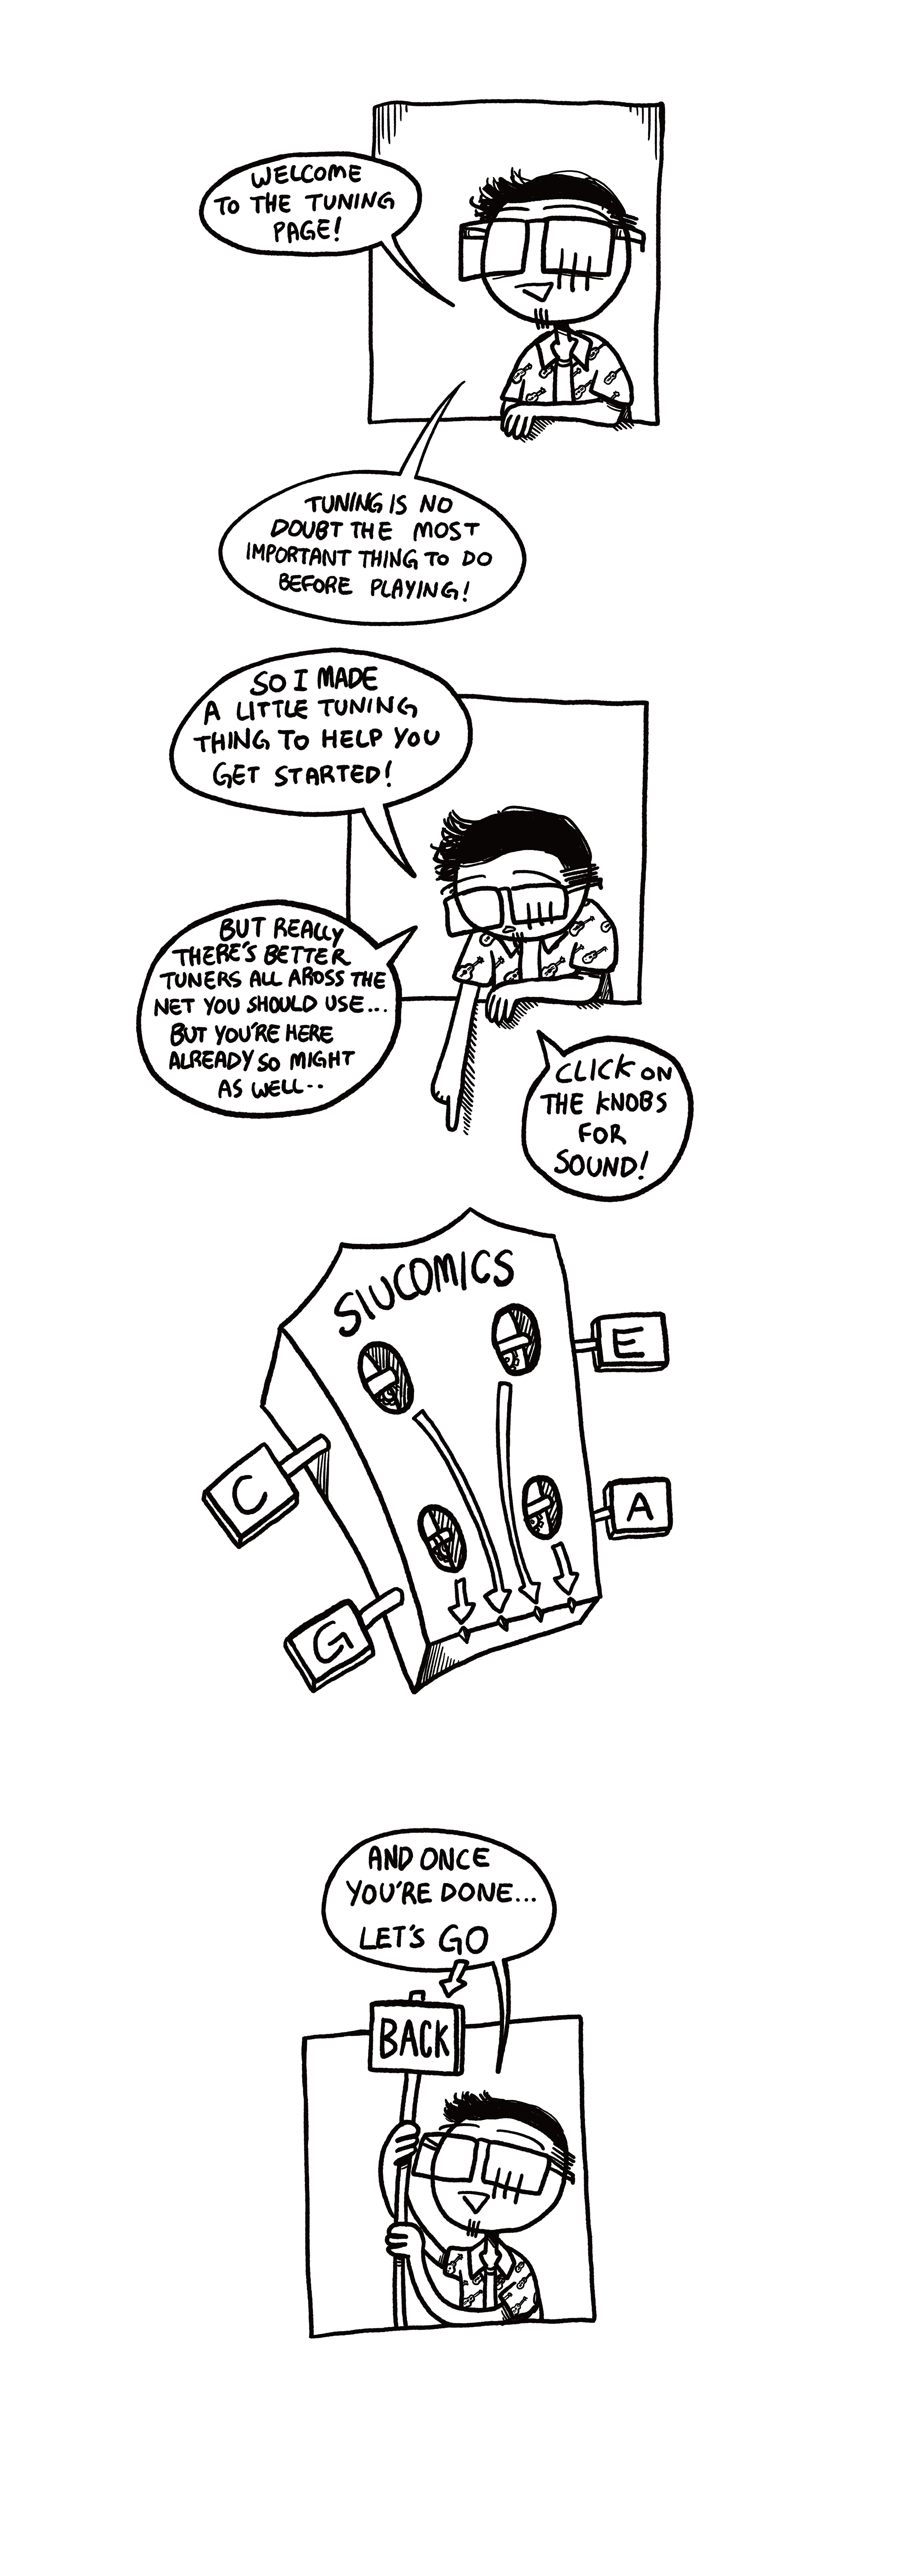 WELCOME
TO THE TUNING
PAGE!
TUNING IS NO
DOUBT THE MOST
IMPORTANT THING TO DO
BEFORE PLAYING!
SO I MADE
A LITTLE TUNING
THING TO HELP YOU
GET STARTED!
BUT REALLY
THERE'S BETTER
TUNERS ALL AROSS THE
NET YOU SHOULD USE...
BUT YOU'RE HERE
ALREADY SO MIGHT
AS WELL..
CLICK ON
THE KNOBS
FOR
SOUND!
SIUCOMICS
E
C
A
G
AND ONCE
YOU'RE DONE...
LET'S GO
BACK